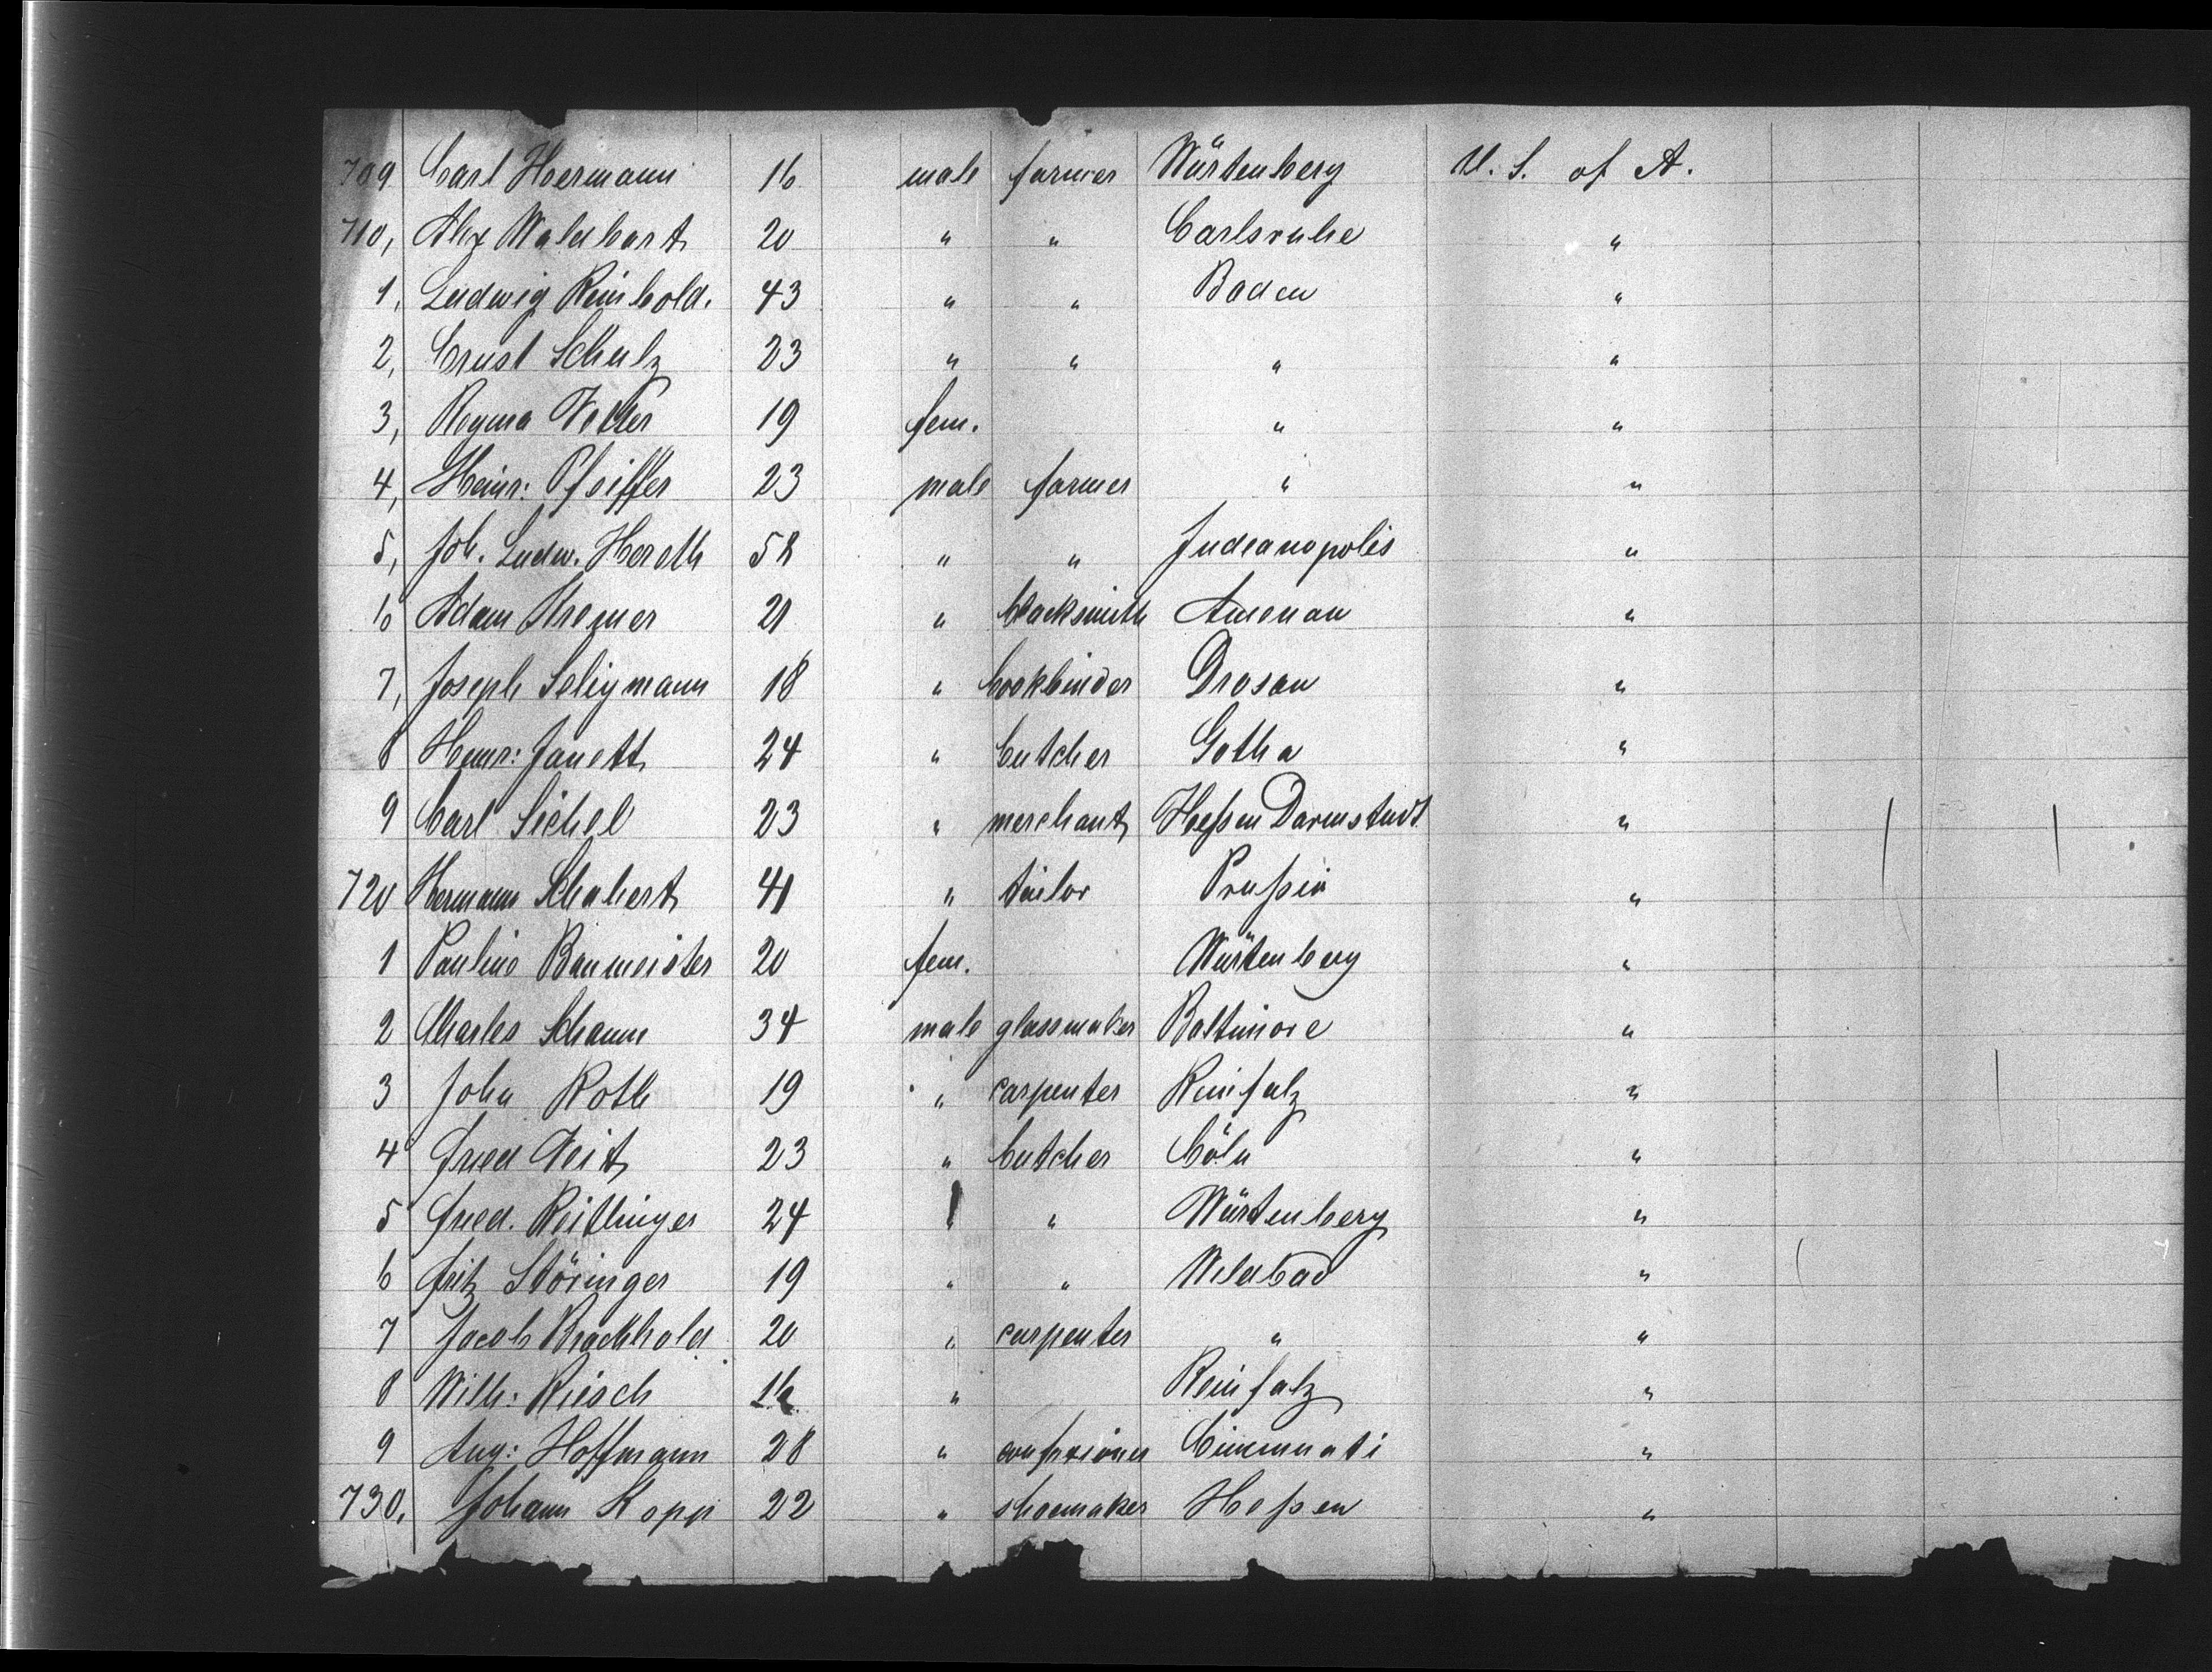 709 Carl Hermann 16 male farmer Würtenberg U. S. of A.
710, Alex Waldbart 20 " " Carlsruhe "
1, Ludwig Reinbold. 43 " " Baden "
2, Ernst Schulz 23 " " " "
3, Regina Vetter 19 fem. " "
4, Heinr: Pfeiffer 23 male farmer " "
5, Joh. Ludw. Heroth 58 " " Indeanopolis "
6 Adam Kremer 21 " blacksmith "
7, Joseph Seligmann 18 " bookbinder "
8 Heinr: Janett 24 " butcher Gotha "
9 Carl Sichel 23 " merchant Heßen Darmstadt "
720 Hermann Schubert 41 " tailor Prußia "
1 Pauline Baumeister 20 fem. Würtenberg "
2 Charles Schaum 34 male glassmaker Baltimore "
3 John Roth 19 " carpenter Reinfalz "
4 Fried Veit 23 " butcher Cöln "
5 Fried. Reitlinger 24 " " Würtenberg "
6 Fritz Störinger 19 " " Wildbad "
7 Jacob Brachhold 20 " carpenter " "
8 Wilh: Riesch 16 " Reinfalz "
9 Aug: Hoffmann 28 " Cincinnati "
730. Johann Kopp 22 " shoemaker Heßen "